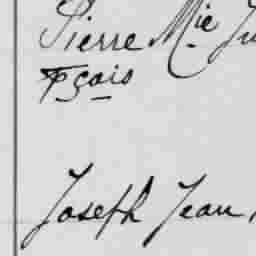 Pierre Mie Ju
Fçois
Joseph Jean